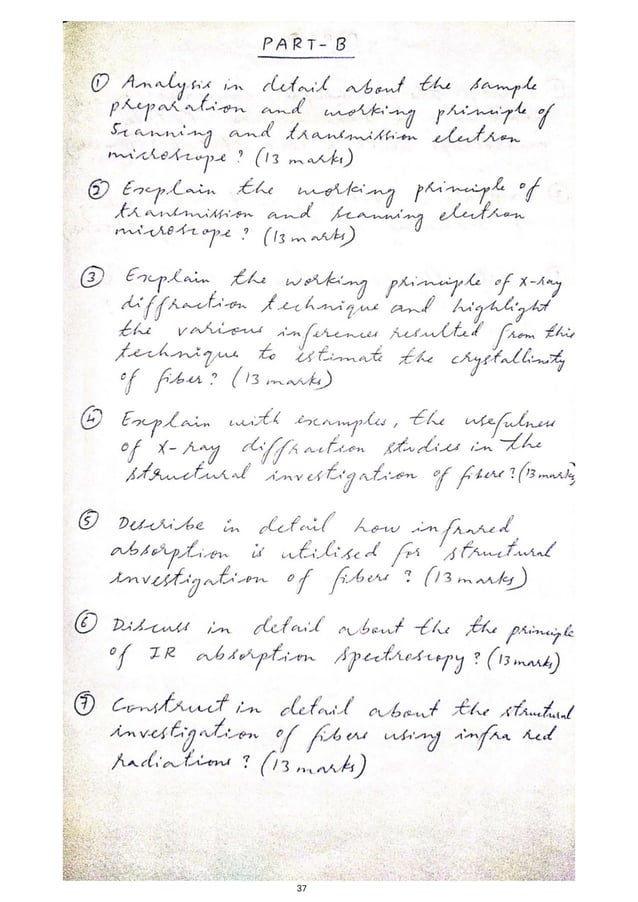 PART-B
① Analysis in detail about the sample
preparation and working principle of
Scanning and transmission electron
microscope? (13 marks)
② Explain the working principle of
transmission and scanning electron
microscope? (13 marks)
③ Explain the working principle of X-ray
diffraction technique and highlight
the various inferences resulted from this
technique to estimate the crystallinity
of fiber? (13 marks)
④ Explain with examples, the usefulness
of X-ray diffraction studies in the
structural investigation of fibers? (13 marks)
⑤ Describe in detail how infrared
absorption is utilised for structural
investigation of fibers? (13 marks)
⑥ Discuss in detail about the the principle
of IR absorption spectroscopy? (13 marks)
⑦ Construct in detail about the structural
investigation of fibers using infra red
radiations? (13 marks)
37